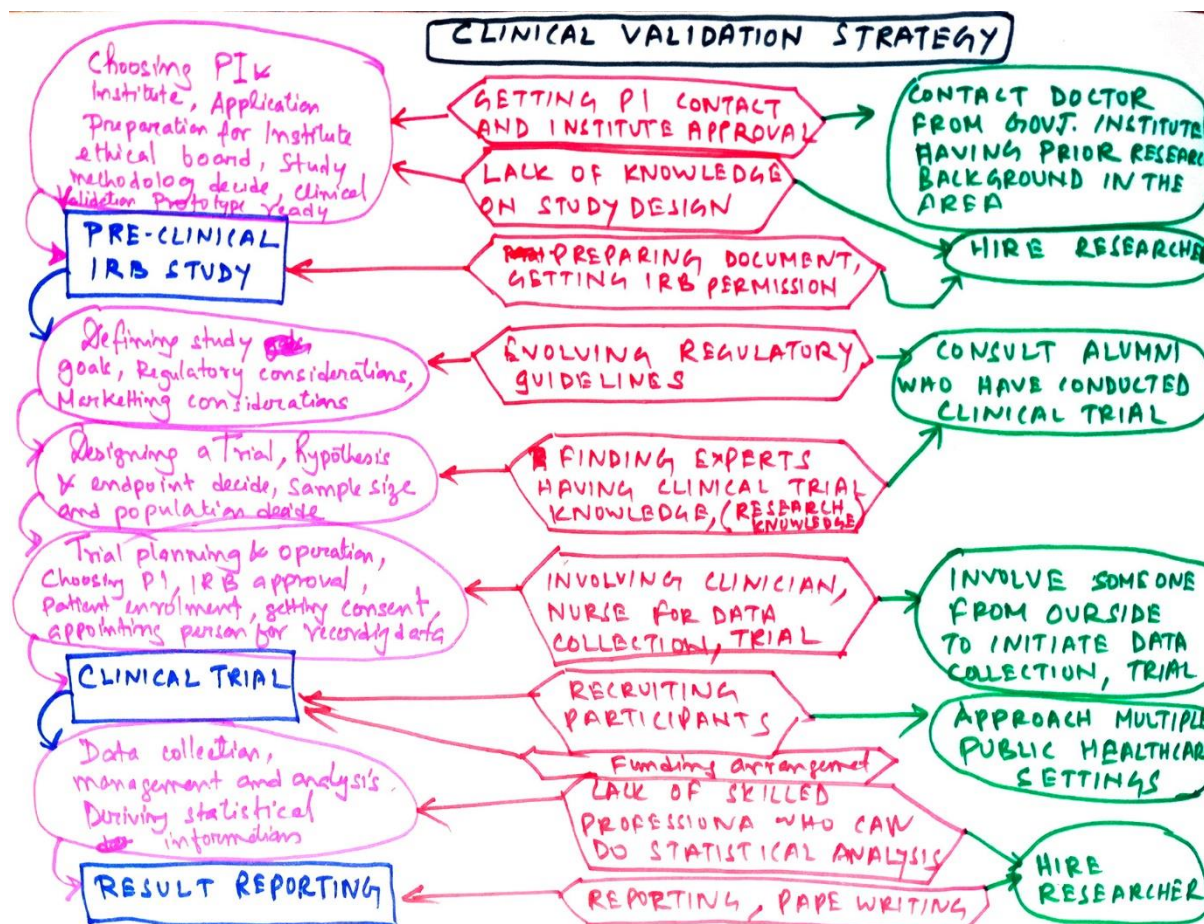 CLINICAL VALIDATION STRATEGY
Choosing PI &
Institute, Application
Preparation for Institute
ethical board, Study
methodolog decide, clinical
Validation Prototype ready
PRE-CLINICAL
IRB STUDY
Defining study
goals, Regulatory considerations,
Marketting considerations
Designing a Trial, Hypothesis
& endpoint decide, Sample size
and population decide
Trial planning & operation,
Choosing PI, IRB approval,
Patient enrolment, getting consent,
appointing person for recordig data
CLINICAL TRIAL
Data collection,
management and analysis.
Deriving statistical
information
RESULT REPORTING
GETTING PI CONTACT
AND INSTITUTE APPROVAL
LACK OF KNOWLEDGE
ON STUDY DESIGN
PREPARING DOCUMENT,
GETTING IRB PERMISSION
EVOLVING REGULATORY
GUIDELINES
FINDING EXPERTS
HAVING CLINICAL TRIAL
KNOWLEDGE, (RESEARCH
KNOWLEDGE)
INVOLVING CLINICIAN,
NURSE FOR DATA
COLLECTION, TRIAL
RECRUITING
PARTICIPANTS
Funding arrangemet
LACK OF SKILLED
PROFESSIONA WHO CAN
DO STATISTICAL ANALYSIS
REPORTING, PAPE WRITING
CONTACT DOCTOR
FROM GOVT. INSTITUTE
HAVING PRIOR RESEARC
BACKGROUND IN THE
AREA
HIRE RESEARCHE
CONSULT ALUMNI
WHO HAVE CONDUCTED
CLINICAL TRIAL
INVOLVE SOMEONE
FROM OURSIDE
TO INITIATE DATA
COLLECTION, TRIAL
APPROACH MULTIPLE
PUBLIC HEALTHCAR
SETTINGS
HIRE
RESEARCHER